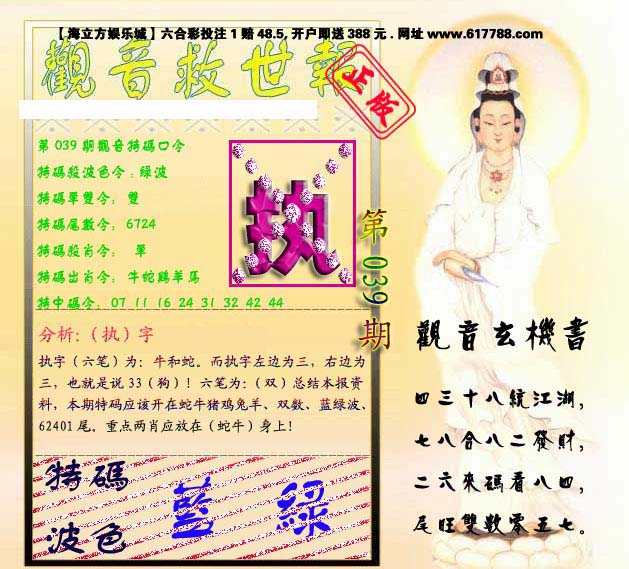 【海立方娱乐城】六合彩投注1赔48.5,开户即送388元.网址 www.617788.com
觀音救世報
正版
第039期觀音特碼口令
特碼殺波色令:綠波
特碼單雙令: 雙
特碼尾數令: 6724
特碼殺肖令: 單
特碼出肖令: 牛蛇鷄羊馬
特中碼令: 07 11 16 24 31 32 42 44
执
第039期
分析:（执）字
执字（六笔）为：牛和蛇。而执字左边为三，右边为
三，也就是说33（狗）！六笔为：（双）总结本报资
料，本期特码应该开在蛇牛猪鸡兔羊、双数、蓝绿波、
62401尾。重点两肖应放在（蛇牛）身上!
特碼
波色
藍 綠
觀音玄機書
四三十八統江湖，
七八合八二發財，
二六來碼看八四，
尾旺雙數零五七。